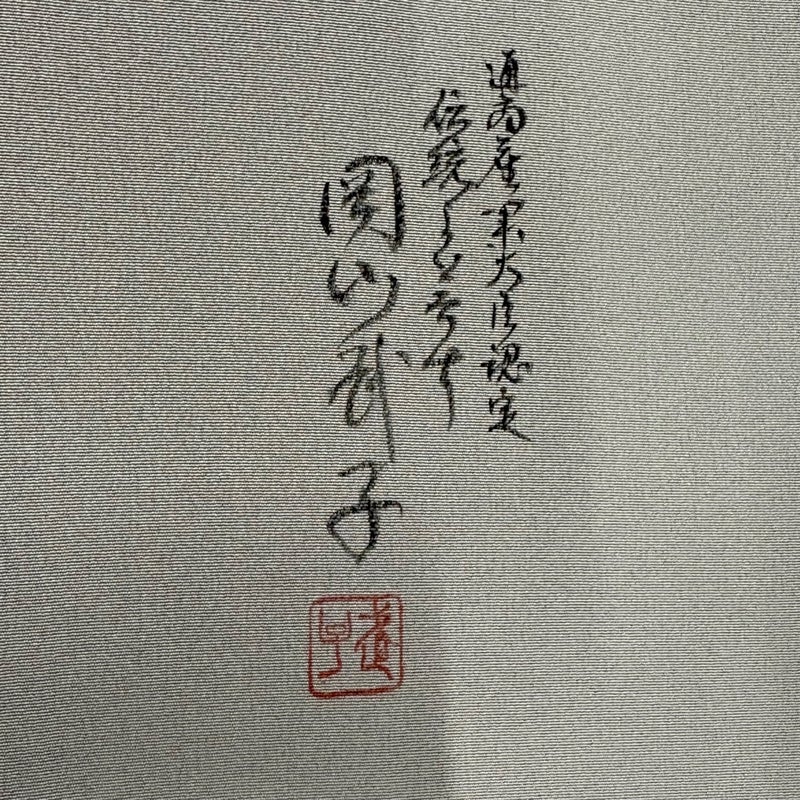 通商産業大臣認定
伝統工芸士
岡山武子